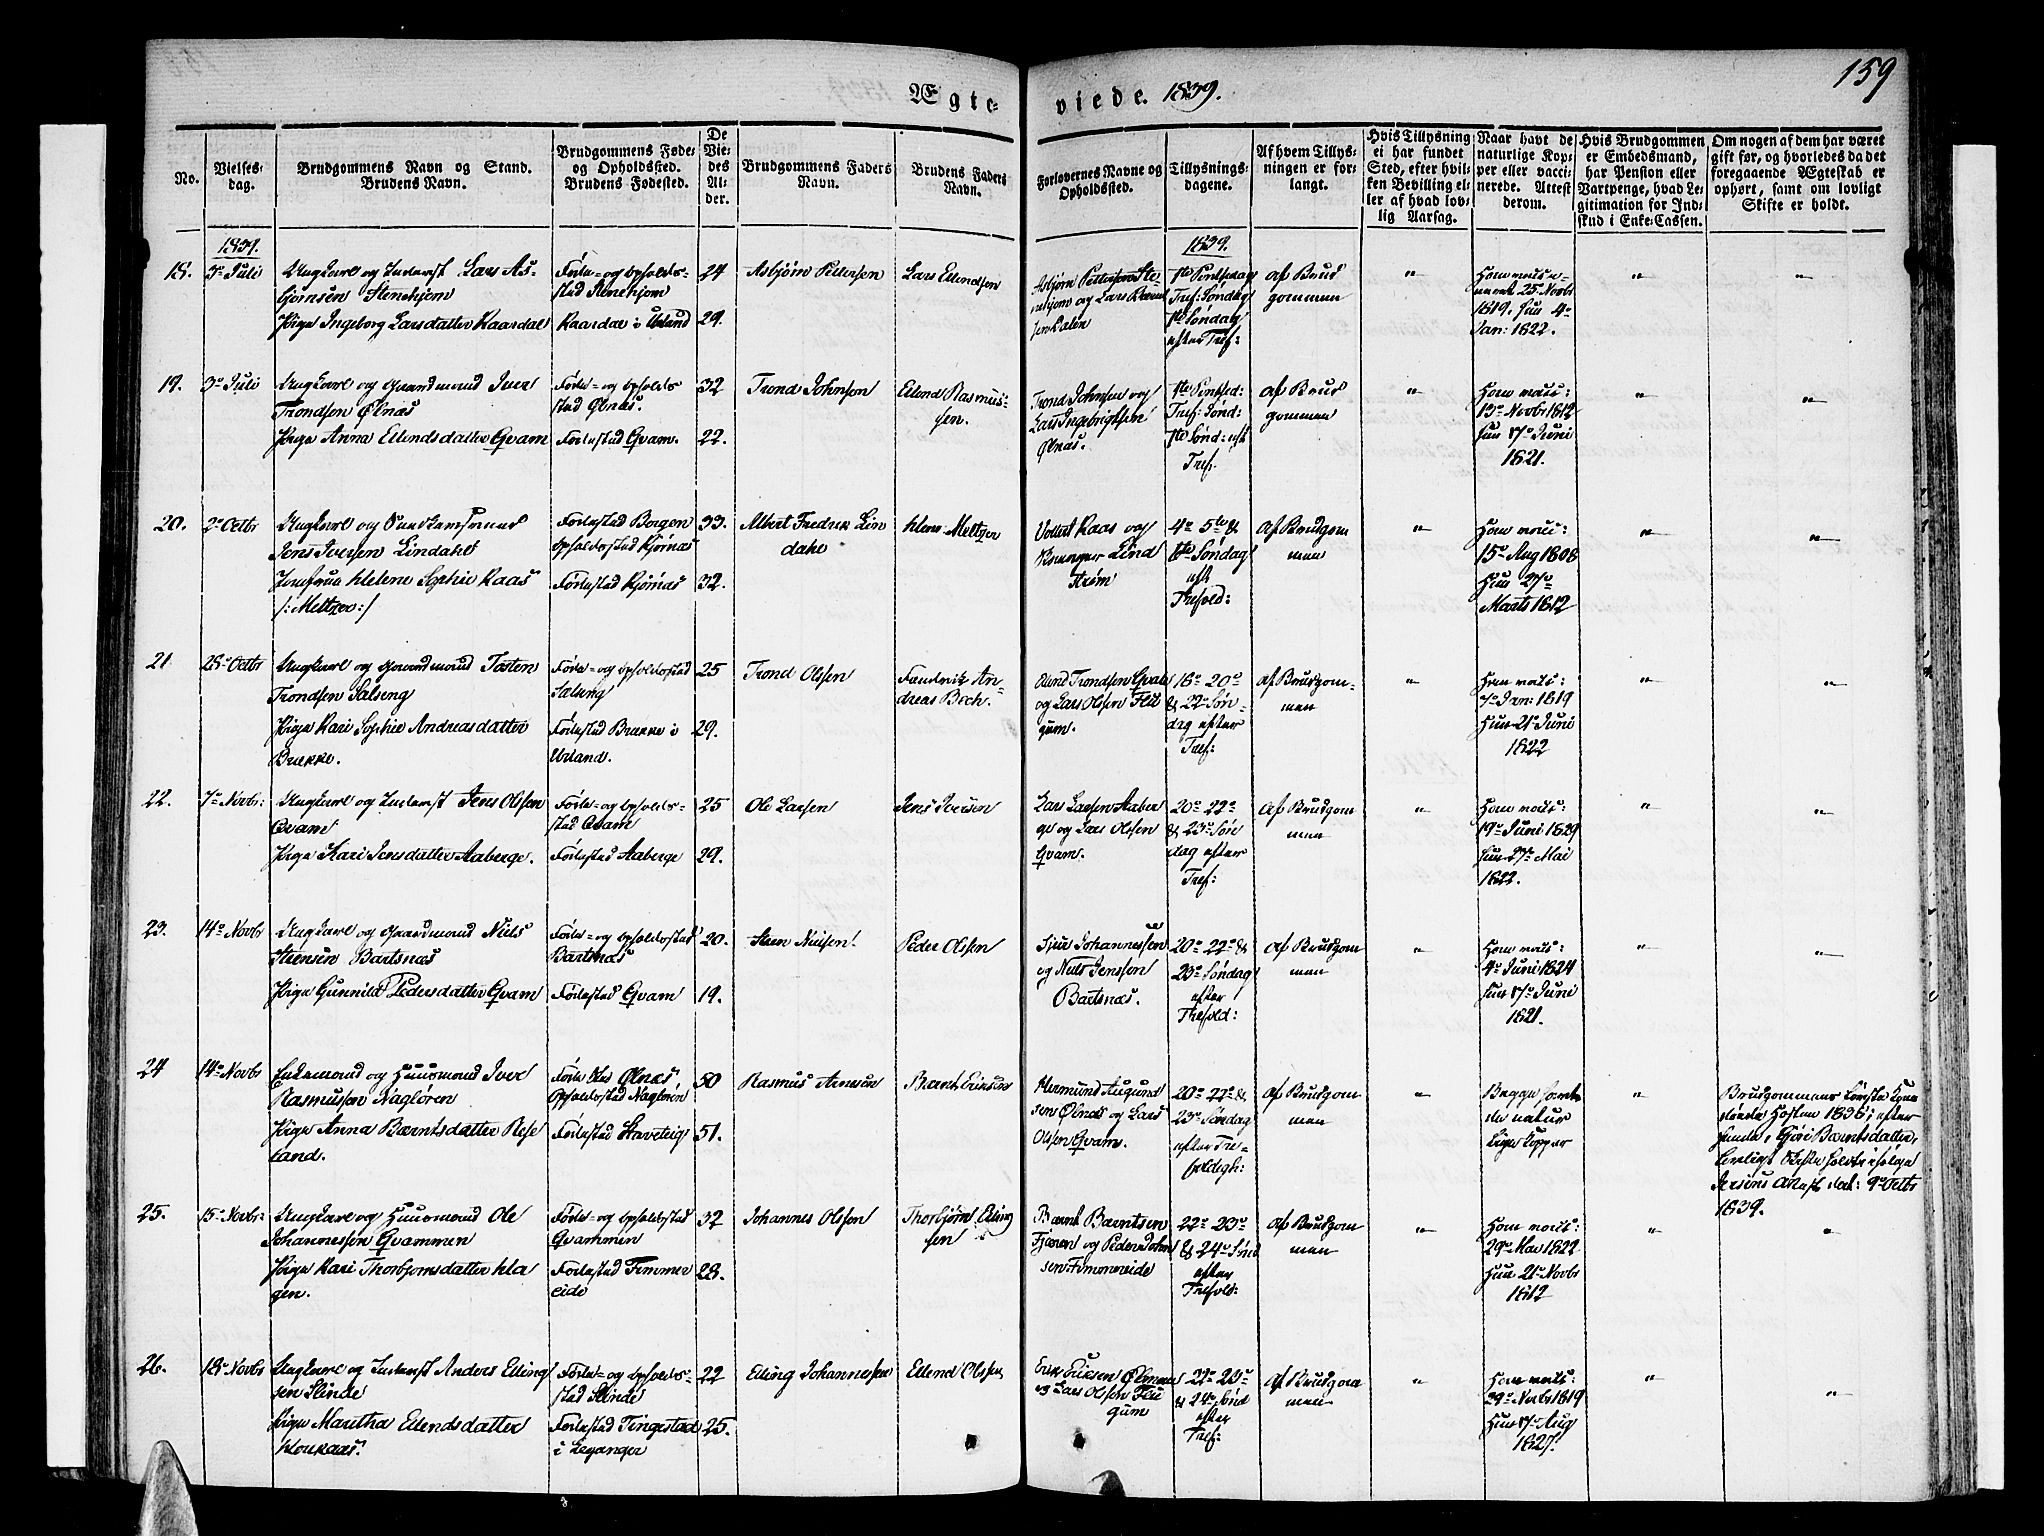 159
Ægte-
viede. 1839.
No.
Vielses-
dag.
Brudgommens Navn og Stand.
Brudens Navn.
Brudgommens Føde-
og Opholdssted.
Brudens Fødested.
De
Vie-
des
Al-
der.
Brudgommens Faders
Navn.
Brudens Faders
Navn.
Forlovernes Navne og
Opholdssted.
Tillysnings-
dagene.
Af hvem Tillys-
ningen er for-
langt.
Hvis Tillysning
ei har fundet
Sted, efter hvil-
ken Bevilling el-
ler af hvad lov-
lig Aarsag.
Naar havt de
naturlige Kop-
per eller vacci-
nerede. Attest
derom.
Hvis Brudgommen
er Embedsmand,
har Pension eller
Vartpenge, hvad Le-
gitimation for Ind-
skud i Enke-Cassen.
Om nogen af dem har været
gift før, og hvorledes da det
foregaaende Ægteskab er
ophørt, samt om lovligt
Skifte er holdt.
1839.
1839.
18.
3die Juli
Ungkarl og Inderst Lars As-
bjørnsen Stenehjem
Pige Ingeborg Larsdatter Kaardal
Føde- og Opholds-
stad Stenehjem
Kaardal i Urland
24
29.
Asbjørn Pettersen
Lars Ellendsen
Asbjørn Pettersen Ste
nehjem og Lars
1ste Søndag
efter Tref:
af Brud
gommen
"
25 Novbr
1819. Hun 4de
Jan: 1822.
"
"
19.
3die Juli
Ungkarl og Gaardmand Iver
Trondsen Ølnæs
Pige Anna Ellendsdatter Qvam
Føde- og Opholds
stad Ølnæs.
Fødestad Qvam.
32
22.
Trond Johnsen
Ellend Rasmus-
sen.
Trond Johnsen og
Lars Ingebrigtsen
Ølnæs.
Tref: Sønd:
1ste Sønd: eft
Tref.
af Brud
gommen
"
13de Novbr 1812
Hun 17de Juni
1821.
"
"
20.
2den Octbr
Ungkarl og
Jens Iversen Lindahl
Jomfrue Helene Sophie Kaas
/: Meltzer :/
Fødestad Bergen
Opholdsstad Kjørnæs
Fødestad Kjørnæs
33.
32.
Albert Fredrik Lin
dahl
Meltzer
Kaas og
Lind
strøm
4de 5te &
6te Søndag
eft
Trefold:
af Brudgom
men
"
15de Aug 1808
Hun 27de
Marts 1812
"
"
21
28de Octbr
Ungkarl og Gaardmand Tosten
Trondsen Salseng
Pige Kari Sophie Andreasdatter
Brække.
Føde- og Opholdsstad
Salseng
Fødestad Brække i
Urland.
25
29.
Trond Olssen
Fredrik An-
dreas Bech.
Trondsen
og Lars Olssen Flu
gum.
18de 20de
& 22de Søn
dag efter
Tref:
af Brudgom-
men
"
Jan: 1819
Hun 21de Juni
1822
"
"
22.
7de Novbr:
Ungkarl og Inderst Jens Olssen
Qvam
Pige Kari Jensdatter Aaberge.
Føde- og Opholds-
stad Qvam
Fødestad Aaberge
25
29.
Ole Larsen
Jens Iversen
Lars Larsen Aaber
ge og Lars Olssen
Qvam.
20de 22de
& 23de Søn
dag efter
Tref:
af Brudgom
men
"
19de Juni 1829
Hun 27de Mai
1822.
"
"
23.
14de Novbr
Ungkarl og Gaardmand Niels
Steensen Bartsnæs
Pige Gunnild Pedersdatter Qvam
Føde- og Opholdsstad
Bartsnæs
Fødestad Qvam
20.
19.
Steen Nielsen
Peder Olssen
Sjur Johannessen
og Niels Jenssen
Bartsnæs.
20de 22de &
23de Søndag
efter
Trefold:
af Brudgom
men
"
4de Juni 1824
Hun 17de Juni
1821.
"
"
24
14de Novbr
Enkemand og Huusmand Iver
Rasmussen Nagløren
Pige Anna Berntsdatter Rese
land.
Ølnæs,
Opholdsstad Nagløren
Fødestad Staveteig
50
51.
Rasmus Arnesen
Bernt Eriksen
Hermund Augund
sen Ølnæs og Lars
Olssen Qvam.
20de 22de &
23de Søndag
efter Tre-
foldigh:
af Brudgom
men
"
Begge havt
de natur
lige Kopper
"
Brudgommens første Kone
døde Høsten 1836; efter
hende, Gjøri Berntsdatter,
1839.
25.
15de Novbr:
Ungkarl og Huusmand Ole
Johannessen Qvammen
Pige Kari Thorbjørnsdatter Ha
gen.
Føde- og Opholdsstad
Qvammen
Fødestad Timmer
eide
32
28.
Johannes Olssen
Thorbjørn Elling
sen
Bernt Berntsen
Fjæren og Peder John
sen Timmereide
22de 23de
& 24de Sønd
efter
Trefold:
af Brudgom
men
"
29de Mai 1822
Hun 21de Novbr
1812
"
"
26.
18de Novbr
Ungkarl og Inderst Anders Elling
sen Slinde
Pige Maritha Ellendsdatter
Føde- og Opholds-
stad Slinde
Fødestad Tingestad
i Leganger
22
25.
Elling Johannessen
Ellend Olssen
Erik Eriksen
og Lars Olssen Flu
gum
22de 23de
& 24de Sønd
efter
Tref:
af Brudgom
men
"
29de Novbr 1819
Hun 17de Aug
1827.
"
"